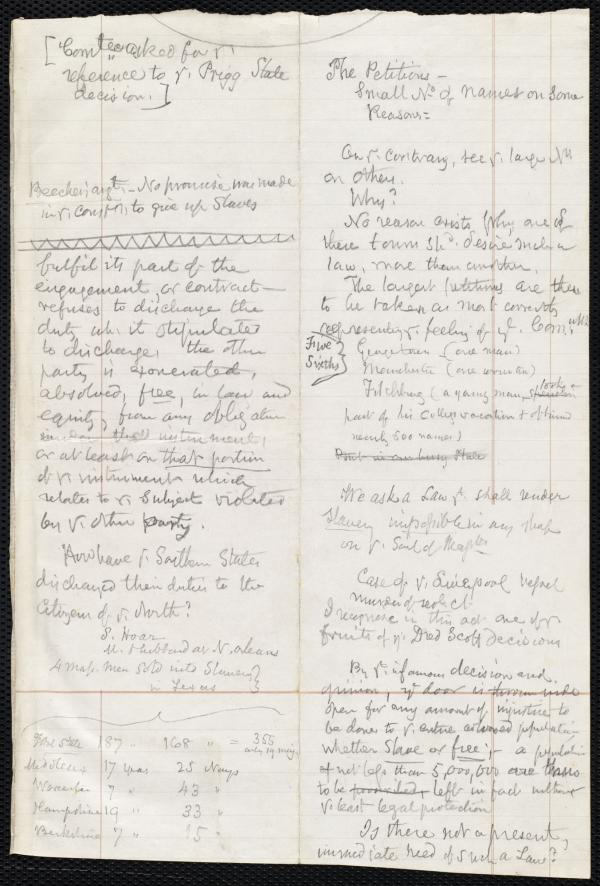 ["Comtee asked for ye
reference to ye Prigg Slave
decision.]
Beecher's argt. - No promise was made
in ye Constn to give up Slaves
fulfil its part of the
engagement, or contract -
refuses to discharge the
duty wh. it stipulated
to discharge, the other
party is exonerated,
absolved, free, in law and
equity, from any obligation
instrument,
or at least on that portion
of ye instrument which
relates to ye Subject violated
by ye other party.
How have ye Southern States
discharged their duties to the
Citizens of ye North?
S. Hoar
H. Hubbard at N. Orleans
4 Mass. men Sold into Slavery }
in Texas }
187 " 168 " = 355
Middlesex 17 yeas 25 Nays
Worcester 7 " 43 "
Hampshire 19 " 33 "
Berkshire 7 " 15 "
The Petitions -
Small No of names on some
Reasons =
On ye contrary, see ye large Nos
on others.
Why?
No reason exists why one of
these towns shd. desire such a
law, more than another.
The largest petitions are then
to be taken as most correctly
representing ye feeling of ye Comwlth
Five
Sixths }
Georgetown (one man)
Manchester (one woman)
Fitchburg (a young man, took a
part of his College vacation & obtained
nearly 500 names)
We ask a Law yt. shall render
Slavery impossible in any shape
on ye Soil of Massts
Case of ye Liverpool vessel
I recognize in this act one of ye
fruits of ye Dred Scott decision
By yt. infamous decision and
opinion, ye door is thrown wide
open for any amount of injustice to
be done to ye entire colored population
whether Slave or free; - a population
of not less than 5,000,000 are thus
to be left in fact without
ye least legal protection
Is there not a present,
immediate need of such a Law?